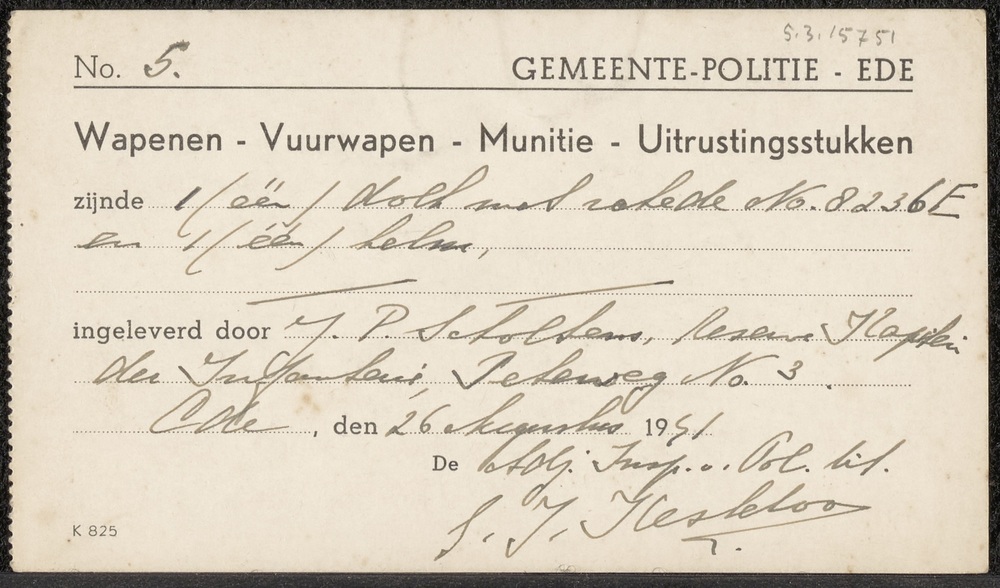 5.3.15751
No. 5. GEMEENTE-POLITIE - EDE
Wapenen - Vuurwapen - Munitie - Uitrustingsstukken
zijnde 1 (één) dolk met schede No. 8236E
en 1 (één) helm,
ingeleverd door J. P. Scholtens, Reserve Kapitein
der Infanterie, Peterweg No. 3.
Ede, den 26 Augustus 1941
De Adj. Insp. v. Pol. tit.
K 825